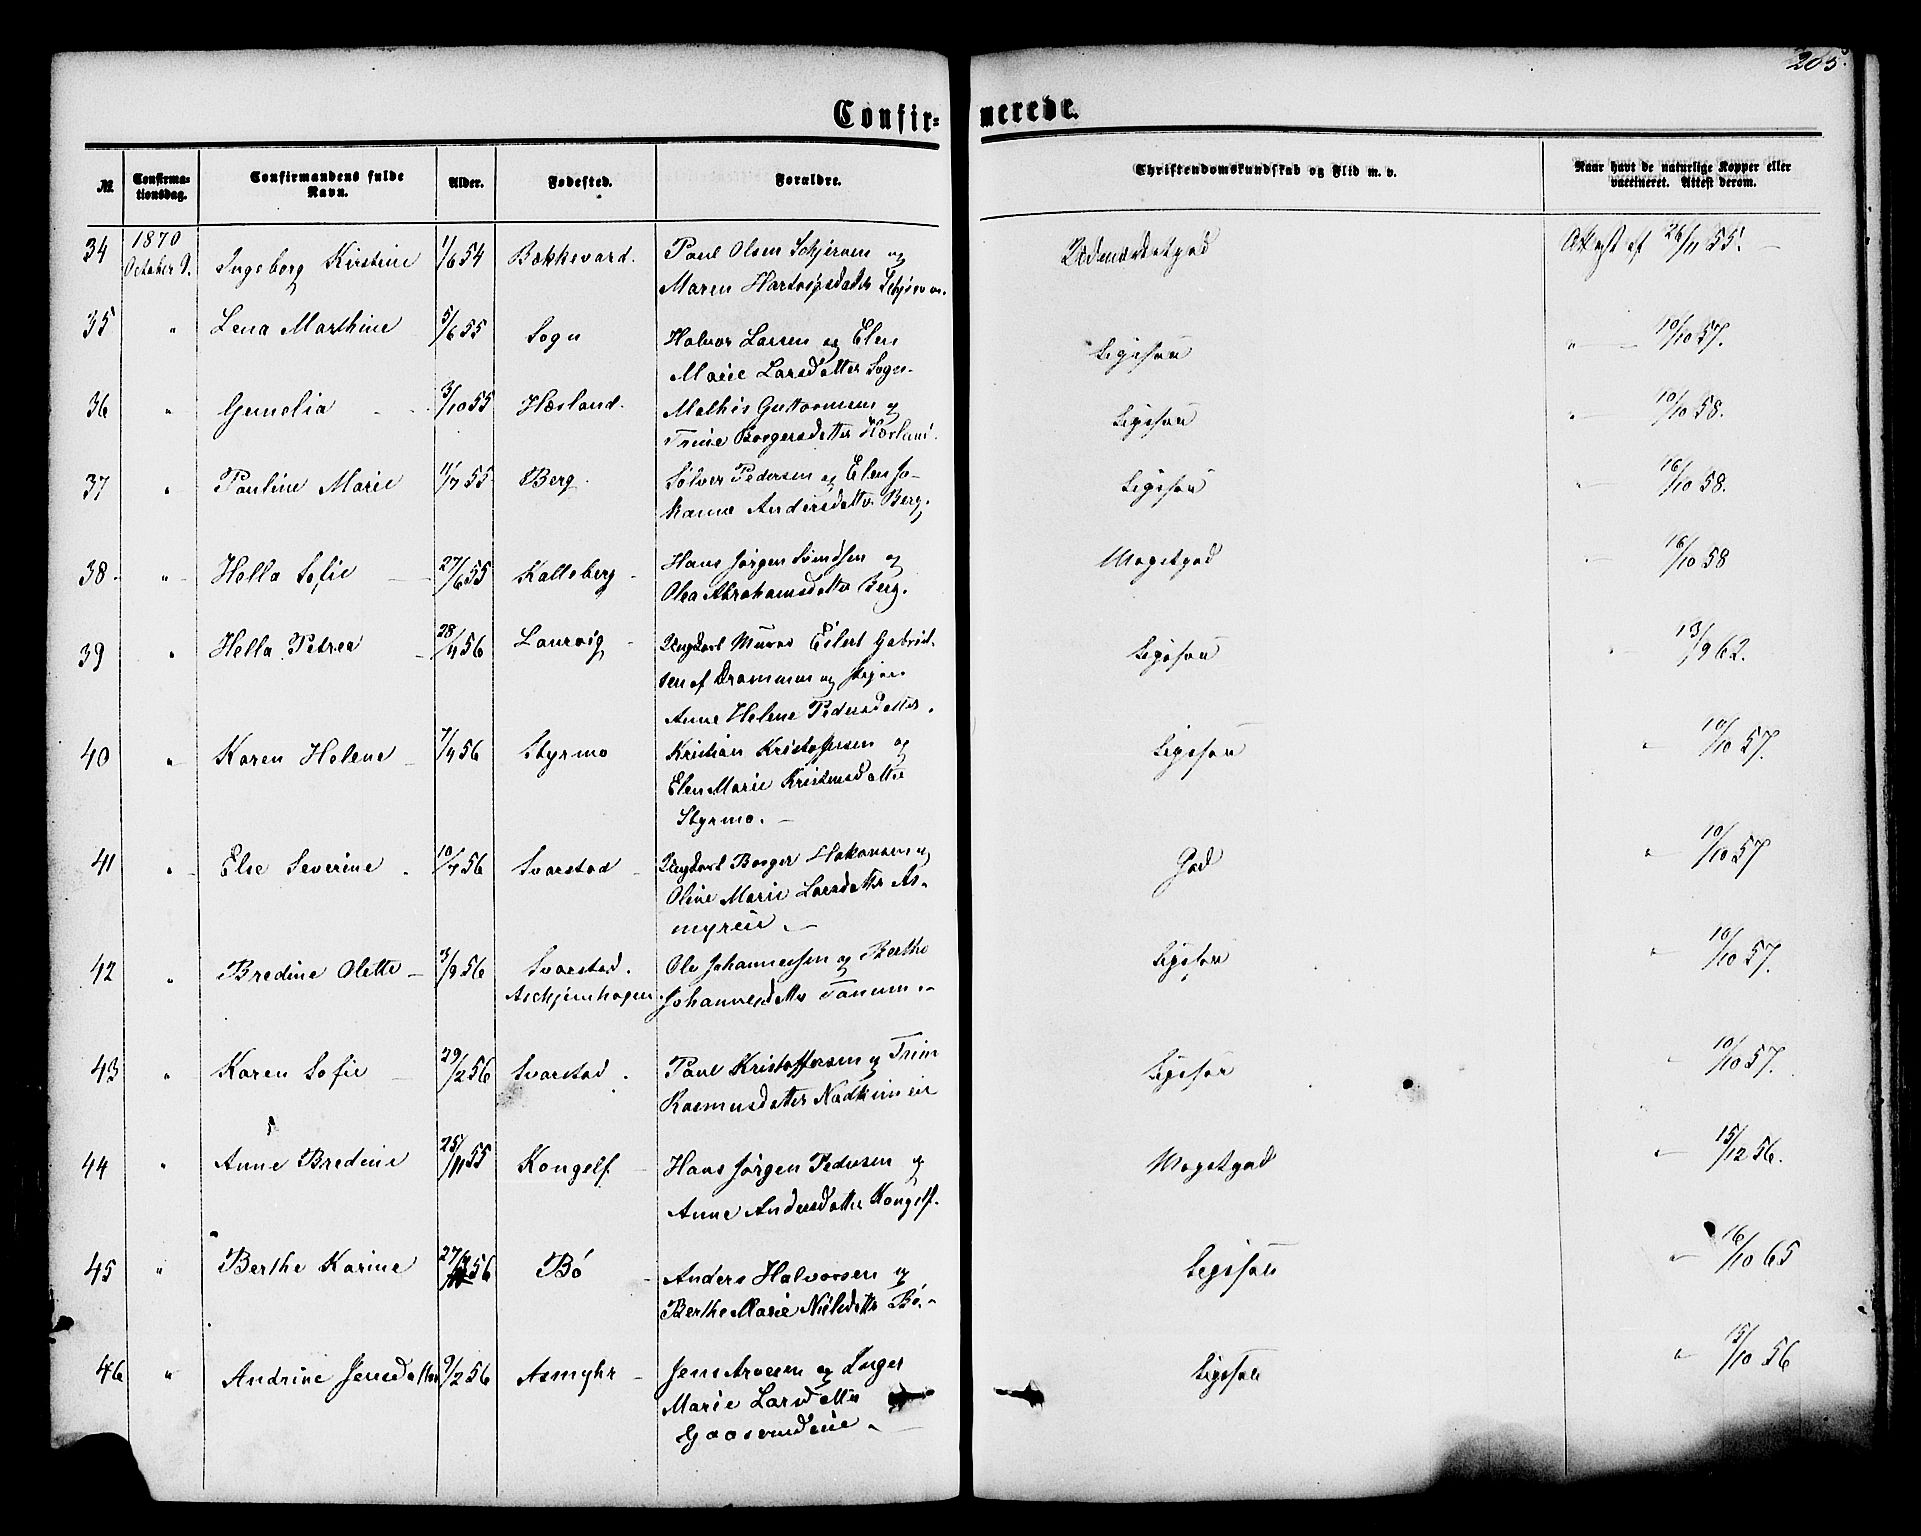 205.
Confir= merede.
№
Confirma-
tionsdag.
Confirmandens fulde
Navn.
Alder.
Fødested.
Forældre.
Christendomskundskab og Flid m. v.
Naar havt de naturlige Kopper eller
vaccineret. Attest derom.
34 1870 October 9. Ingeborg Kirstine 1/6 54 Bækkevard. Poul Olsen og Udmærketgod Attest af 26/11 55. –
Maren
35 " Lena Marthine 5/6 55 Sogn Halvor Larsen og Elen Ligesaa " — 10/10 57.
Marie Larsdatter Sogn.
36 " Gunelia 3/10 55 Hæsland. Mathis Guttormsen og Ligesaa " 10/10 58.
Trine Borgersdatter Hæsland.
37 " Pauline Marie 11/7 55 Berg. Sølver Pedersen og Elen Jo- Ligesaa " 16/10 58.
hanne Andersdatter Berg.
38. " Hella Sofie 27/6 55 Kalleberg Hans Jørgen Svendsen og Megetgod " 16/10 58
Olea Abrahamsdatter Berg.
39 " Hella Petrea 28/4 56 Laurvig Ungkarl Murer Eilert Gabriel- Ligesaa " 13/9 62.
sen af Drammen og Pigen
Anne Helene Pedersdatter.
40 " Karen Helene 7/4 56 Styrmo Kristian Kristofersen og Ligesaa " 10/10 57.
Elen Marie Kristensdatter
Styrmo. –
41 " Else Severine 10/7 56 Svarstad Ungkarl Borger Hakonsen og God " 10/10 57
Oline Marie Larsdatter As-
myreie. –
42 " Bredine Olette 3/9 56 Svarstad. Ole Johannesen og Berthe Ligesaa " 10/10 57.
Askjemhagen. Johannesdatter Tanum. –
43 " Karen Sofie 29/2 56 Svarstad. Poul Kristoffersen og Trine Ligesaa " 10/10 57.
Rasmusdatter
44 " Anne Bredine 25/11 55 Kongelf Hans Jørgen Pedersen og Megetgod " 15/12 56.
Anne Andersdatter Kongelf.
45 " Berthe Karine 27/ 56 Bö Anders Halvorsen og Ligesaa " 16/10 65
Berthe Marie Nielsdatter Bö. –
46 " Andrine Jensdatter 9/2 56 Asmyhr Jens Arvesen og Inger Ligesaa " 15/10 56
Marie Larsdatter
Gaaserudeie. –